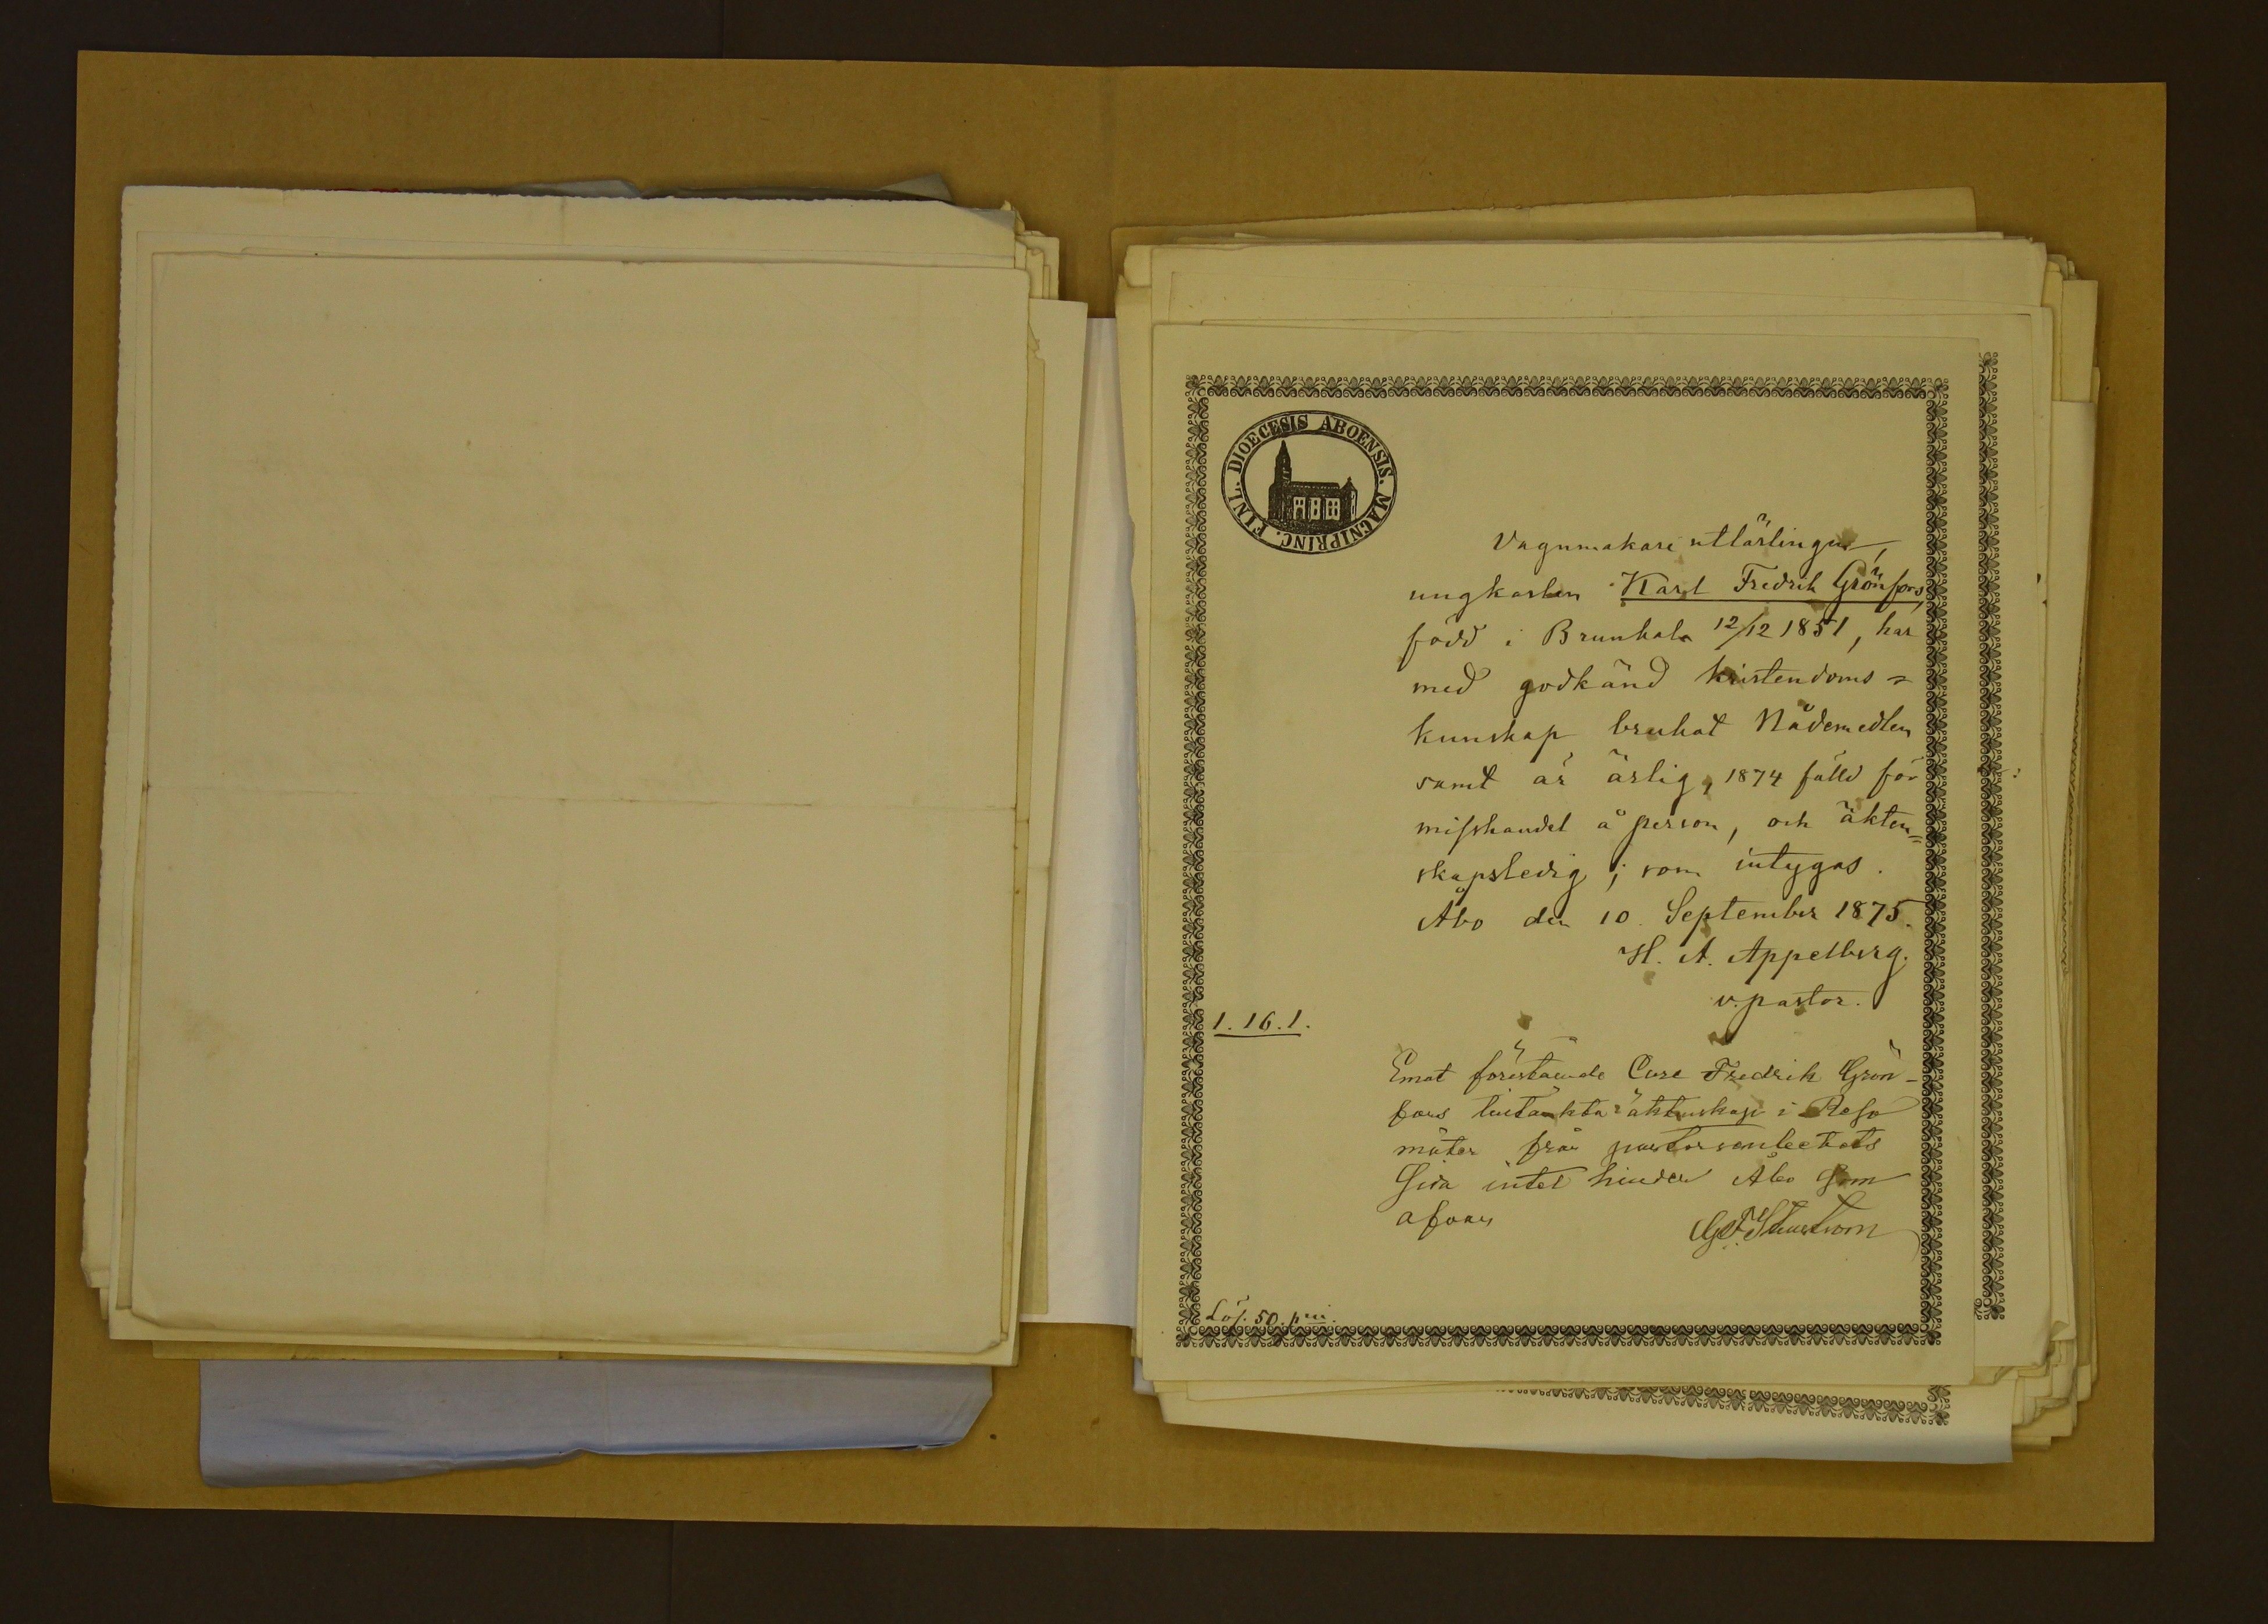 FINL. DIOECESIS ABOENSIS. MAGNIPRINC.
Vagnmakare utlärlingen,
ungkarlen Karl Fredrik Grönfors,
född i Brunkala 12/12 1851, har
med godkänd kristendoms=
kunskap brukat Nådemedlen
samt är ärlig, 1874 fälld för
misshandel å person, och äkten=
skapsledig; som intygas.
Åbo den 10 September 1875.
H. A. Appelberg.
v. pastor.
1. 16. 1.
Emot förestående Carl Fredrik Grön-
fors tiltänkta äktenskap i Reso
möter från pastorsembetets
Sida intet hinder Åbo som
ofvan
Lös. 50. pni.